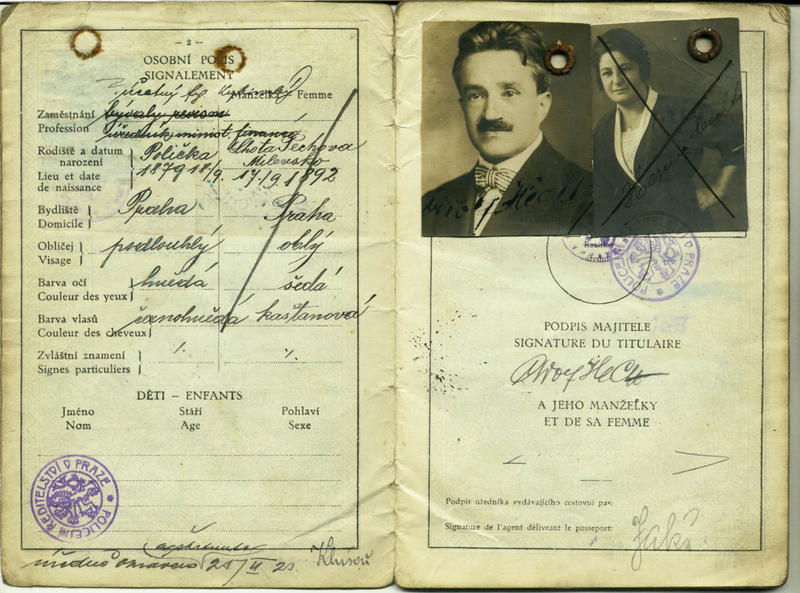 — 2 —
OSOBNÍ POPIS
SIGNALEMENT
účetný fy
Manželka Femme
Zaměstnání bývalý revisor
Profession úředník minist. financí
Rodiště a datum narození Polička Lhota Pechova Milevsko
Lieu et date de naissance 1879 18/9. 17/9 1892
Bydliště Praha Praha
Domicile
Obličej podlouhlý oblý
Visage
Barva očí hnědá šedá
Couleur des yeux
Barva vlasů černohnědá kaštanová
Couleur des cheveux
Zvláštní znamení
Signes particuliers
DĚTI – ENFANTS
Jméno Stáří Pohlaví
Nom Age Sexe
POLICEJNÍ ŘEDITELSTVÍ V PRAZE
úředně opraveno
Hecht
POLICEJNÍ V PRAZE
PODPIS MAJITELE
SIGNATURE DU TITULAIRE
Hecht
A JEHO MANŽELKY
ET DE SA FEMME
Podpis úředníka vydávajícího cestovní pas:
Signature de l'agent délivrant le passeport: